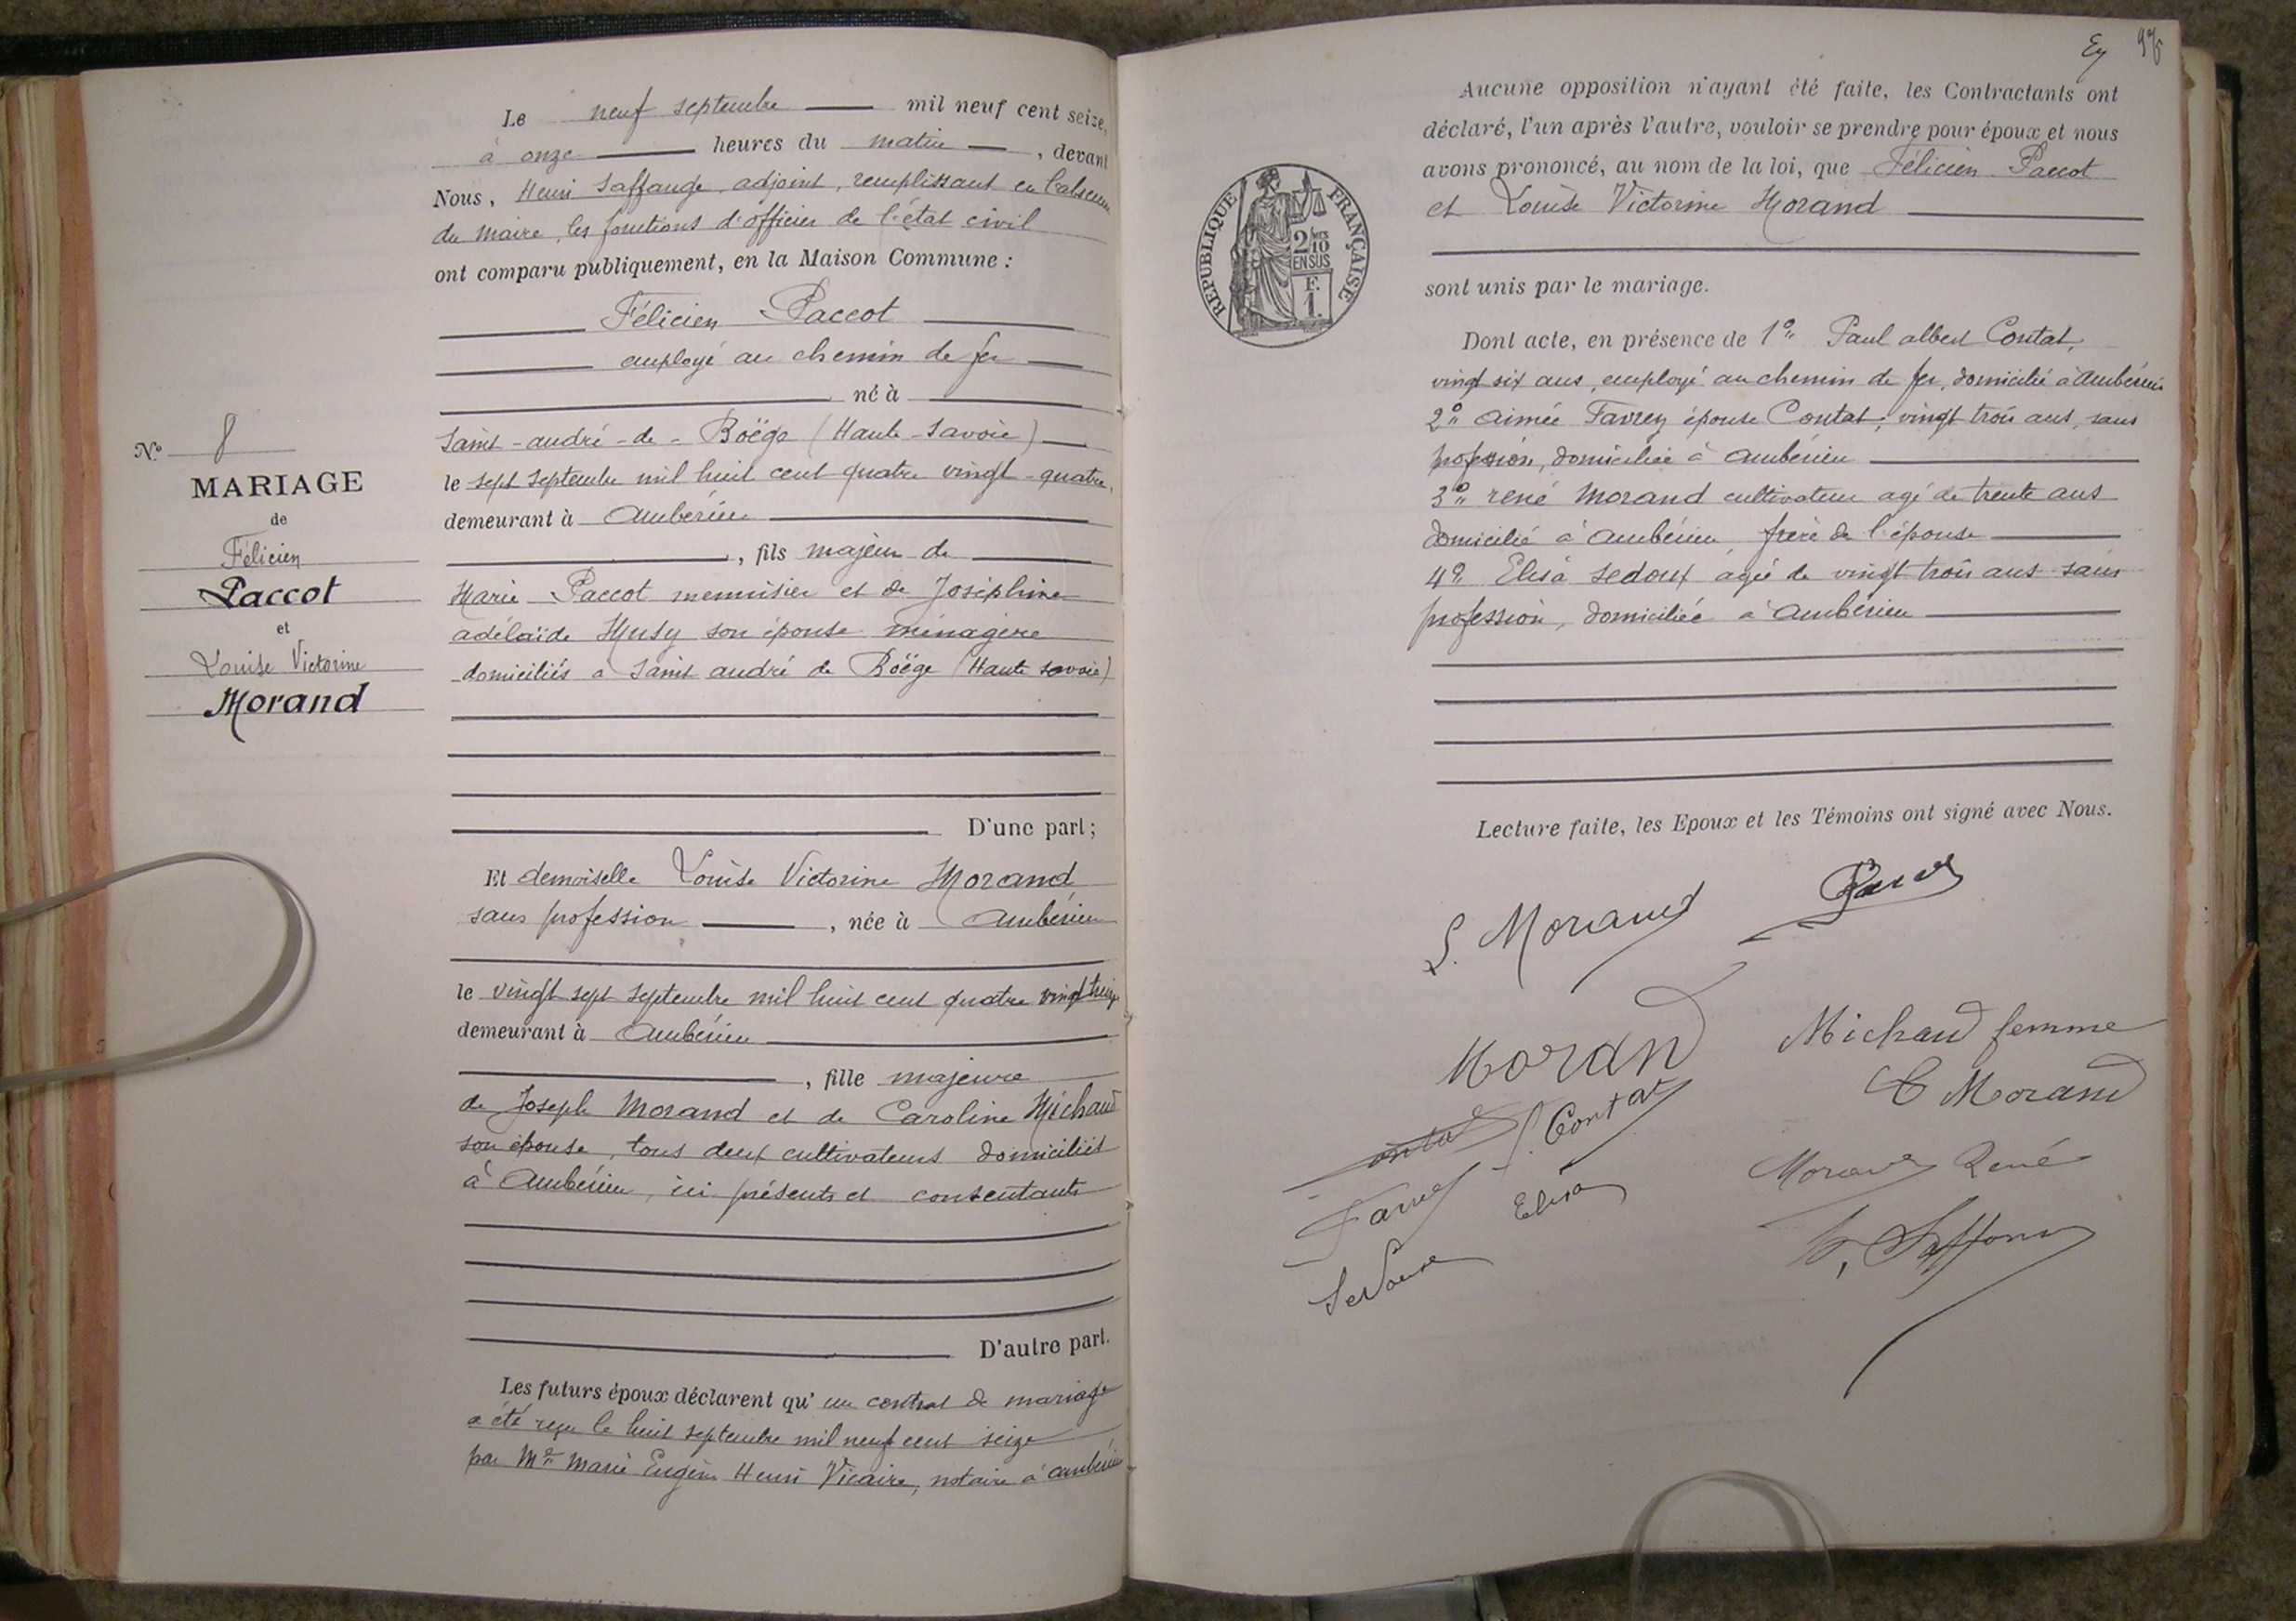 Le neuf septembre mil neuf cent seize,
à onze heures du matin, devant
Nous, Henri Saffange, adjoint, remplissant en l'absence
du maire, les fonctions d'officier de l'état civil
ont comparu publiquement, en la Maison Commune :
Félicien Paccot
employé au chemin de fer
né à
Saint-andré-de-Boëge (Haute-Savoie)
le sept septembre mil huit cent quatre vingt-quatre,
demeurant à Ambérieu
, fils majeur de
Marie Paccot menuisier et de Joséphine
adélaïde Musy son épouse ménagère
domiciliés à Saint andré de Boëge (Haute savoie)
D'une part ;
N° 8
MARIAGE
de
Félicien
Paccot
et
Louise Victorine
Morand
Et demoiselle Louise Victorine Morand
sans profession, née à Ambérieu
le vingt sept septembre mil huit cent quatre vingt treize
demeurant à Ambérieu
, fille majeure
de Joseph Morand et de Caroline Michaud
son épouse, tous deux cultivateurs domiciliés
à Ambérieu, ici présents et consentants
D'autre part.
Les futurs époux déclarent qu' un contrat de mariage
a été reçu le huit septembre mil neuf cent seize
par Me Marie Eugène Henri Vicaire, notaire à ambérieu
Ey 95
REPUBLIQUE FRANÇAISE
2/10 EN SUS
F.
1.
Aucune opposition n'ayant été faite, les Contractants ont
déclaré, l'un après l'autre, vouloir se prendre pour époux et nous
avons prononcé, au nom de la loi, que Félicien Paccot
et Louise Victorine Morand
sont unis par le mariage.
Dont acte, en présence de 1° Paul albert Contat,
vingt six ans, employé au chemin de fer, domicilié à Ambérieu
2° Aimée Favrey épouse Contat, vingt trois ans, sans
profession, domiciliée à Ambérieu
3° rené Morand cultivateur agé de trente ans
domicilié à Ambérieu, frère de l'épouse
4° Elisa Sedoux agée de vingt trois ans sans
profession, domiciliée à Ambérieu
Lecture faite, les Epoux et les Témoins ont signé avec Nous.
L. Morand Paccot
Morand Michaud femme
C Morand
Contat
Morand René
Elisa